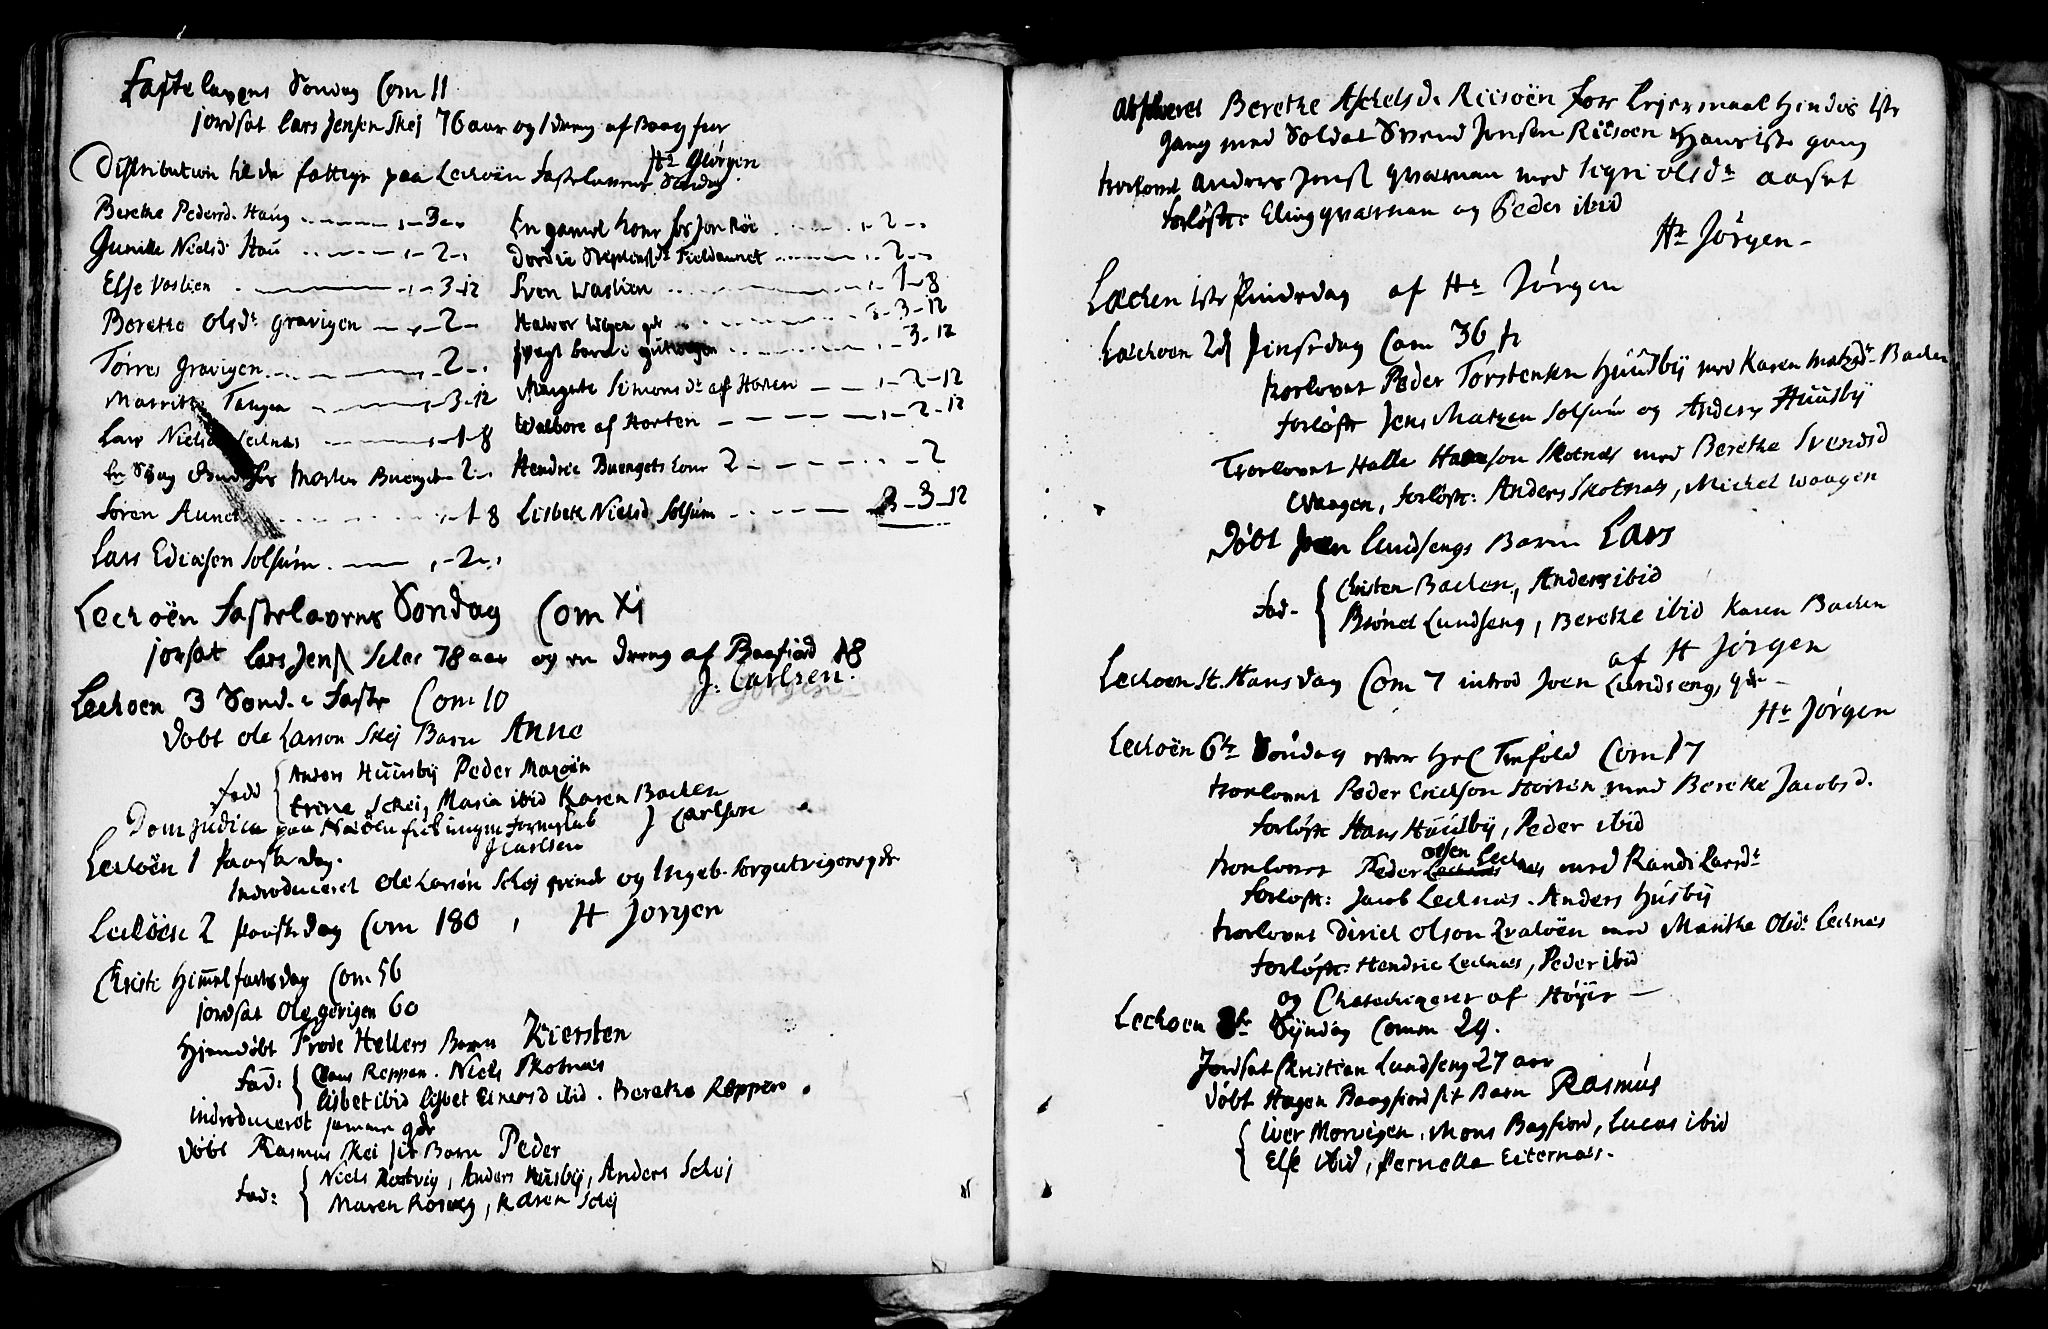 Fastelavens Sondag Com 11
jordsat Lars Jensen Skej 76 aar og 1 dreng af Baagfiur
Hr Jörgen
Distribution til de fattige paa Lechöen Fastelavens Sondag
Berethe Pedersd. Haug - 3 -
Gunille Nielsd. Hau - 2 -
Else Vaslien - 3 - 12
Berethe Olsdr Gravigen - 2 -
Törres Gravigen - 2 -
Marrith Tangen - 3 - 12
Lars Nielsd Lecknes - 1 - 8
En Svag for Morten Buenget - 2 -
Sören Aunet - 1 8
Lars Edicasen Solsum - 2 -
En gammel kone for Jon Röe - 2 -
Dordie Stephensdr Fieldaunet - 2 -
Sven Waslien - 1 - 8
Halvor Wogen - 3 - 12
barn i - 3 - 12
Margrete Simonsdr af Horten - 2 - 12
Walbore af Horten - 2 - 12
Hendric Buengets kone 2 - 2
Lisbeth Nielsd. Solsum - 3 - 12
Lechöen Fastelavens Sondag Com XI
jorsat Lars Jens. Schei 78 aar og en dreng af Baafiord 18
J. Carlsen.
Lechoen 3 Sond. i Faste Com 10
Döbt Ole Larson Skej Barn Anne
Fadd { Anders Huusbÿ Peder Mazöen
Trine Schei, Maria ibid Karen Bachen
Dom Judica paa Naröen fick ingen formskab J Carlsen
J Carlsen
Lechöen 1 Paaskedag.
Introduceret Ole Larsön Schej qvinde og Ingeb. Sorgutvigens qde
Lechöen 2 paaskedag Com 180, H Jorgen
Christi Himmelfartsdag Com 56
jordsat Ole gerigen 60
Hjemdöbt Frode Hellers Barn Kiersten
Fad: { Claus Reppen. Niels Skotnæs
Lisbet ibid Lisbet Einersd ibid. Berethe Reppen.
introduceret samme qde
Döbt Rasmus Skei sit Barn Peder
Fad: { Niels Rosvig, Anders Huusbÿ, Anders Schej
Maren Rosvig, Karen Schej
Absolveret Berethe Aschelsdr Riisöen for Lejermaal Hendes 1ste
gang med Soldat Svend Jensen Riisoen Hans 1ste gang
trolovet Anders Jens. Qværnan med Sigri Olsdr Aaset
forlöfte: Eling qværnan og Peder ibid
Hr Jörgen -
Læchen 1ste Pindsdag af Hr Jörgen
Læchoen 2d Pinsedag Com 36
trorlovet Peder Torstensen Huusbÿ med Karen Matzdr Bachen
forlöfte Jens Matzen Solsum og Anders Huusbÿ
Trorlovet Halle Hanson Skotnæs med Berethe Svendsd
Waagen, forlöft: Anders Skotnæs, Michel Waagen
Döbt Joen Lundsengs Barn Lars
Fad- { Christen Bachen, Anders ibid
Brönel Lundseng, Berethe ibid Karen Bachen
af H Jörgen
Lechoen St. Hansdag Com 7 introd Joen Lundseng, qde -
Hr Jörgen
Lechoën 6te Söndag efter Hel. Trefold Com 17
trorlovet Peder Erichson Horten med Berethe Jacobsd.
forlöft Hans Huusbÿ, Peder ibid
trorlovet Peder Olsen Lechnes med Randi Larsdr
forlöft: Jacob Lechnæs. Anders Húsbÿ
trorlovet Dirich Olson Qvalöen med Marithe Olsdr Lechnæs
forlöft: Hendric Lechnæs, Peder ibid
og Chatechizerer af Höjer -
Lechoen 8te Syndag Comm 29.
Jordsat Christian Lundseng 27 aar
Döbt Hagen Baagfiord sit Barn Rasmús
{ Iver Morvigen, Mons Bagfiord, Lucas ibid
Else ibid, Pernella Eiternæs.